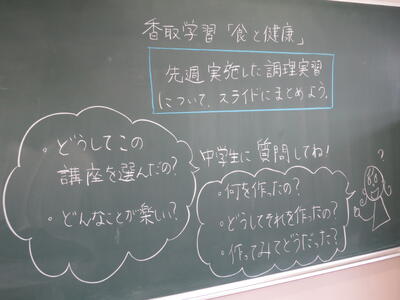 香取学習「食と健康」
先週実施した調理実習
について、スライドにまとめよう。
・どうしてこの
講座を選んだの?
・どんなことが楽しい?
中学生に質問してね!
・何を作ったの?
・どうしてそれを作ったの?
・作ってみてどうだった?
?